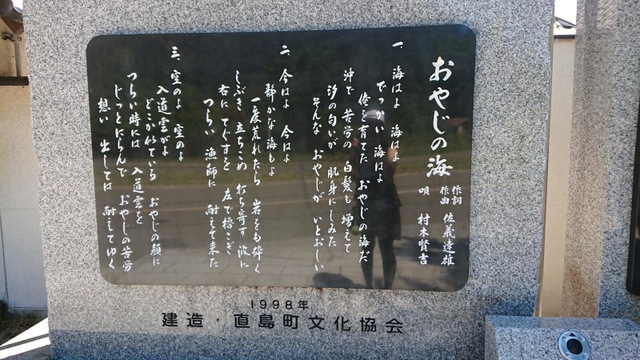 おやじの海
作詞
作曲 佐義達雄
唄 村木賢吉
一、海はよ 海はよ
でっかい 海はよ
俺を育てた おやじの海だ
沖で 苦労の 白髪も 増えて
汐の匂いが 肌身にしみた
そんな おやじが いとおしい
二、今はよ 今はよ
静かな 海もよ
一度荒れたら 岩をも 砕く
しぶき 立ちこめ 打ち寄す 波に
右に てぐすを 左で 捨こぎ
つらい 漁師に 耐えて来た
三、空のよ 空のよ
入道雲がよ
どこか似ている おやじの顔に
つらい時には 入道雲を
じっとにらんで おやじの苦労
想い 出しては 耐えてゆく
1998年
建造・直島町文化協会